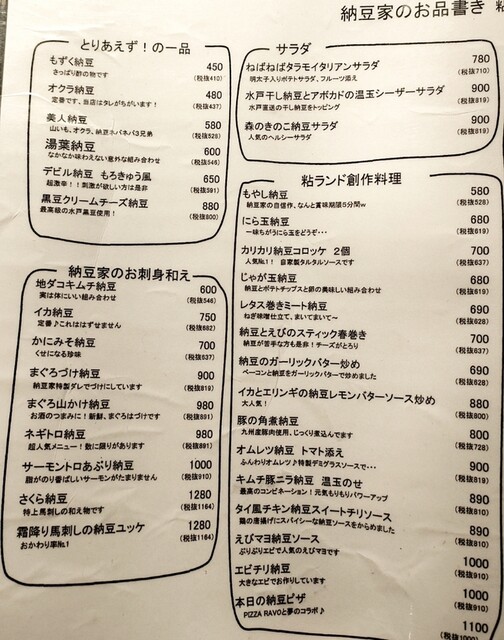 納豆家のお品書き 粘
とりあえず！の一品
もずく納豆 450
さっぱり酢の物です (税抜410)
オクラ納豆 480
定番です、当店はタレがちがいます！ (税抜437)
美人納豆 580
山いも、オクラ、納豆ネバネバ3兄弟 (税抜528)
湯葉納豆 600
なかなか味わえない意外な組み合わせ (税抜546)
デビル納豆 もろきゅう風 650
超激辛！！刺激が欲しい方は是非 (税抜591)
黒豆クリームチーズ納豆 880
最高級の水戸黒豆使用！ (税抜800)
納豆家のお刺身和え
地ダコキムチ納豆 600
実は体にいい組み合わせ (税抜546)
イカ納豆 750
定番♪これははずせません (税抜682)
かにみそ納豆 700
くせになる珍味 (税抜637)
まぐろづけ納豆 900
納豆家特製ダレでづけにしています (税抜819)
まぐろ山かけ納豆 980
お酒のつまみに！新鮮、まぐろはづけです (税抜891)
ネギトロ納豆 980
超人気メニュー！数に限りがあります (税抜891)
サーモントロあぶり納豆 1000
脂がのり香ばしいサーモンがたまりません (税抜910)
さくら納豆 1280
特上馬刺しの和え物です (税抜1164)
霜降り馬刺しの納豆ユッケ 1280
おかわり率№1 (税抜1164)
サラダ
ねばねばタラモイタリアンサラダ 780
明太子入りポテトサラダ、フルーツ添え (税抜710)
水戸干し納豆とアボカドの温玉シーザーサラダ 900
水戸直送の干し納豆をトッピング (税抜819)
森のきのこ納豆サラダ 900
人気のヘルシーサラダ (税抜819)
粘ランド創作料理
もやし納豆 580
納豆家の自信作、なんと賞味期限5分間w (税抜528)
にら玉納豆 680
一味ちがうにら玉をどうぞ･･･ (税抜619)
カリカリ納豆コロッケ 2個 700
人気№1！ 自家製タルタルソースです (税抜637)
じゃが玉納豆 680
納豆とポテトチップスと卵の美味しい組み合わせ (税抜619)
レタス巻きミート納豆 690
ねぎ味噌仕立て、まいてまいて～ (税抜628)
納豆とえびのスティック春巻き 700
納豆が苦手な方も是非！チーズがとろり (税抜637)
納豆のガーリックバター炒め 690
ベーコンと納豆をガーリックバターで炒めました (税抜628)
イカとエリンギの納豆レモンバターソース炒め 880
大人気！ (税抜800)
豚の角煮納豆 800
九州産豚肉使用、じっくり煮込んでます (税抜728)
オムレツ納豆 トマト添え 900
ふんわりオムレツ♪特製デミグラスソースで･･･ (税抜819)
キムチ豚ニラ納豆 温玉のせ 890
最高のコンビネーション！元気もりもりパワーアップ (税抜810)
タイ風チキン納豆スイートチリソース 890
鶏の唐揚げにスパイシーな納豆ソースをからめました (税抜810)
えびマヨ納豆ソース 890
ぷりぷりエビで人気のえびマヨです (税抜810)
エビチリ納豆 1000
大きなエビでお作りしています (税抜910)
本日の納豆ピザ 1000
PIZZA RAVOと夢のコラボ♪ (税抜910)
1100
(税抜1000)